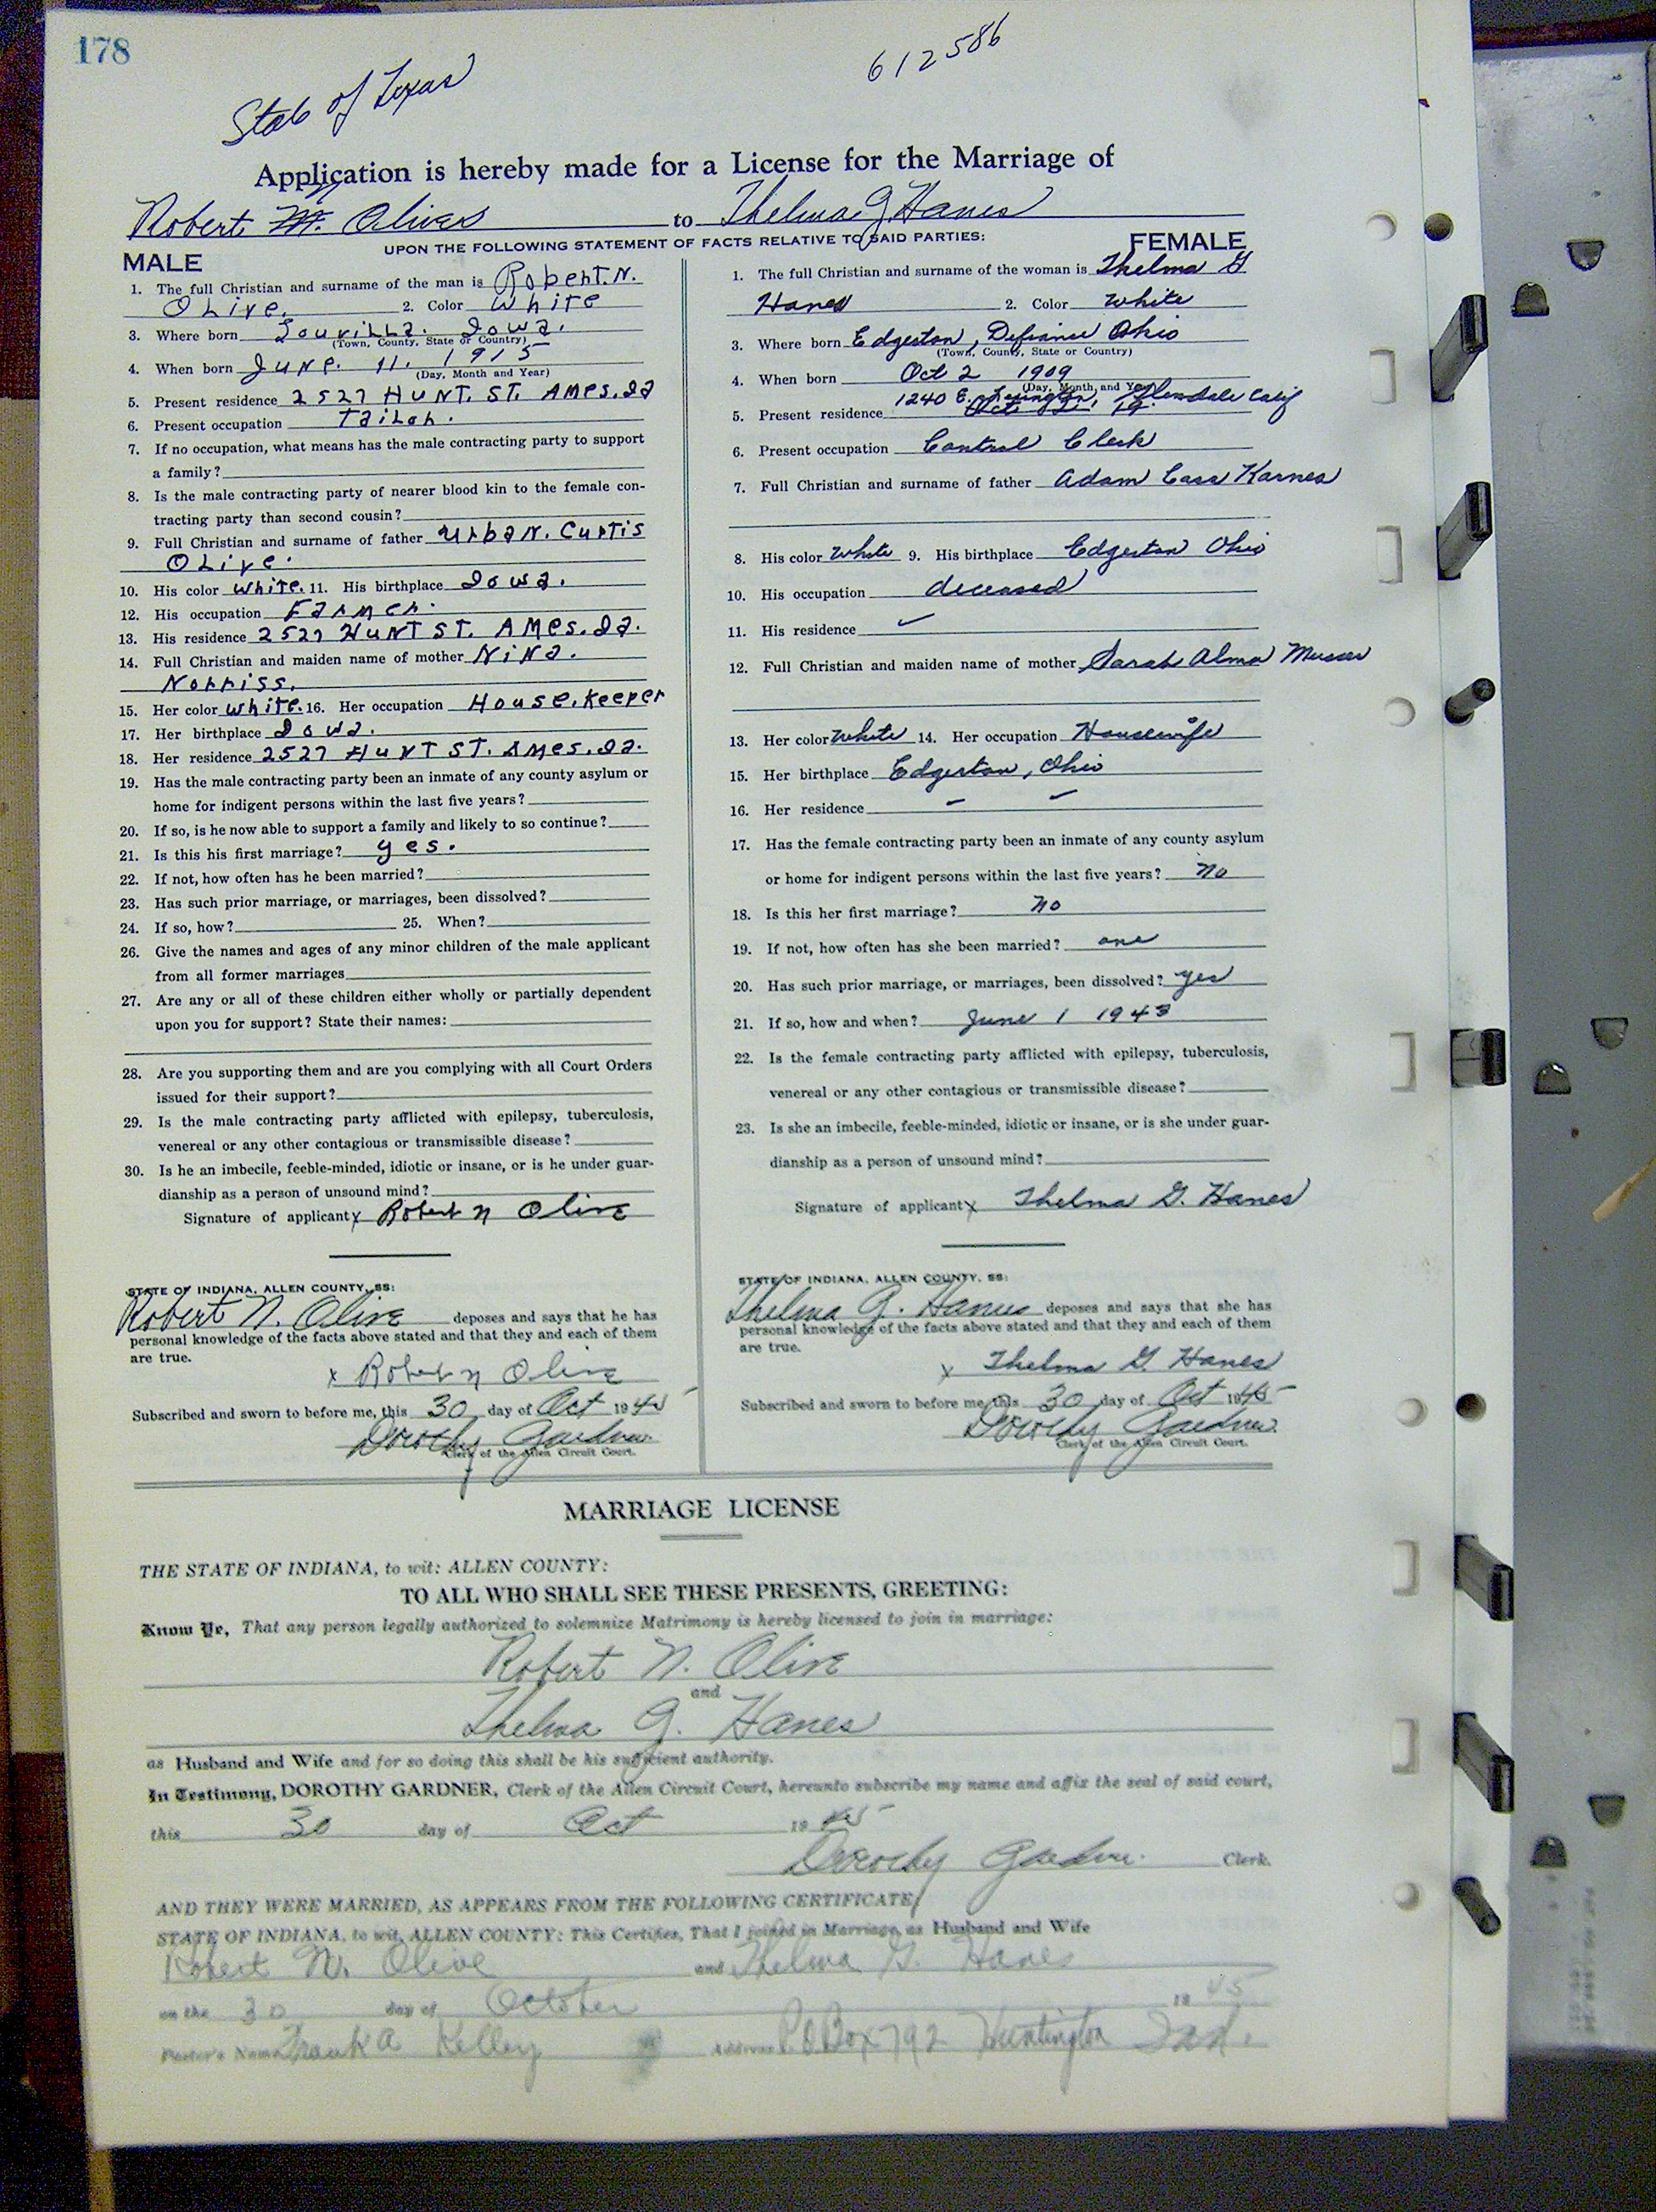 178
State of Texas
612586
Application is hereby made for a License for the Marriage of
N
Robert M. Olives to Thelma G Hanes
UPON THE FOLLOWING STATEMENT OF FACTS RELATIVE TO SAID PARTIES:
MALE
1. The full Christian and surname of the man is Robert. N.
Olive. 2. Color White
3. Where born Iowa.
(Town, County, State or Country)
4. When born June. 11. 1915
(Day, Month and Year)
5. Present residence 2527 HUNT. ST. AMES. Ia
6. Present occupation Tailor.
7. If no occupation, what means has the male contracting party to support
a family?
8. Is the male contracting party of nearer blood kin to the female con-
tracting party than second cousin?
9. Full Christian and surname of father Urban. Curtis
Olive.
10. His color White. 11. His birthplace Iowa.
12. His occupation Farmer.
13. His residence 2527 HUNT ST. AMES. Ia.
14. Full Christian and maiden name of mother Nina.
Norriss.
15. Her color white. 16. Her occupation House. Keeper
17. Her birthplace Iowa.
18. Her residence 2527 HUNT ST. AMES. Ia.
19. Has the male contracting party been an inmate of any county asylum or
home for indigent persons within the last five years?
20. If so, is he now able to support a family and likely to so continue?
21. Is this his first marriage? yes.
22. If not, how often has he been married?
23. Has such prior marriage, or marriages, been dissolved?
24. If so, how? 25. When?
26. Give the names and ages of any minor children of the male applicant
from all former marriages
27. Are any or all of these children either wholly or partially dependent
upon you for support? State their names:
28. Are you supporting them and are you complying with all Court Orders
issued for their support?
29. Is the male contracting party afflicted with epilepsy, tuberculosis,
venereal or any other contagious or transmissible disease?
30. Is he an imbecile, feeble-minded, idiotic or insane, or is he under guar-
dianship as a person of unsound mind?
Signature of applicant x Robert N Olive
STATE OF INDIANA, ALLEN COUNTY, SS:
Robert N. Olive deposes and says that he has
personal knowledge of the facts above stated and that they and each of them
are true.
x Robert N Olive
Subscribed and sworn to before me, this 30 day of Oct 1945
Dorothy Gardner
Clerk of the Allen Circuit Court.
FEMALE
1. The full Christian and surname of the woman is Thelma G
Hanes 2. Color White
3. Where born Edgerton, Defiance Ohio
(Town, County, State or Country)
4. When born Oct 2 1909
(Day, Month and Year)
1240 E. Lexington, Glendale Calif
5. Present residence
6. Present occupation Control Clerk
7. Full Christian and surname of father Adam Casa Karnes
8. His color White 9. His birthplace Edgerton Ohio
10. His occupation deceased
11. His residence
12. Full Christian and maiden name of mother Sarah Alma Musser
13. Her color White 14. Her occupation Housewife
15. Her birthplace Edgerton, Ohio
16. Her residence – –
17. Has the female contracting party been an inmate of any county asylum
or home for indigent persons within the last five years? no
18. Is this her first marriage? no
19. If not, how often has she been married? one
20. Has such prior marriage, or marriages, been dissolved? yes
21. If so, how and when? June 1 1943
22. Is the female contracting party afflicted with epilepsy, tuberculosis,
venereal or any other contagious or transmissible disease?
23. Is she an imbecile, feeble-minded, idiotic or insane, or is she under guar-
dianship as a person of unsound mind?
Signature of applicant x Thelma G. Hanes
STATE OF INDIANA, ALLEN COUNTY, SS:
Thelma G. Hanes deposes and says that she has
personal knowledge of the facts above stated and that they and each of them
are true.
x Thelma G. Hanes
Subscribed and sworn to before me, this 30 day of Oct 1945
Dorothy Gardner
Clerk of the Allen Circuit Court.
MARRIAGE LICENSE
THE STATE OF INDIANA, to wit: ALLEN COUNTY:
TO ALL WHO SHALL SEE THESE PRESENTS, GREETING:
Know Ye, That any person legally authorized to solemnize Matrimony is hereby licensed to join in marriage:
Robert N. Olive
and
Thelma G. Hanes
as Husband and Wife and for so doing this shall be his sufficient authority.
In Testimony, DOROTHY GARDNER, Clerk of the Allen Circuit Court, hereunto subscribe my name and affix the seal of said court,
this 30 day of Oct 1945
Dorothy Gardner Clerk.
AND THEY WERE MARRIED, AS APPEARS FROM THE FOLLOWING CERTIFICATE
STATE OF INDIANA, to wit, ALLEN COUNTY: This Certifies, That I joined in Marriage, as Husband and Wife
Robert N. Olive and Thelma G. Hanes
on the 30 day of October 1945
Pastor's Name Frank A Kelley Address P.O. Box 792 Huntington Ind.